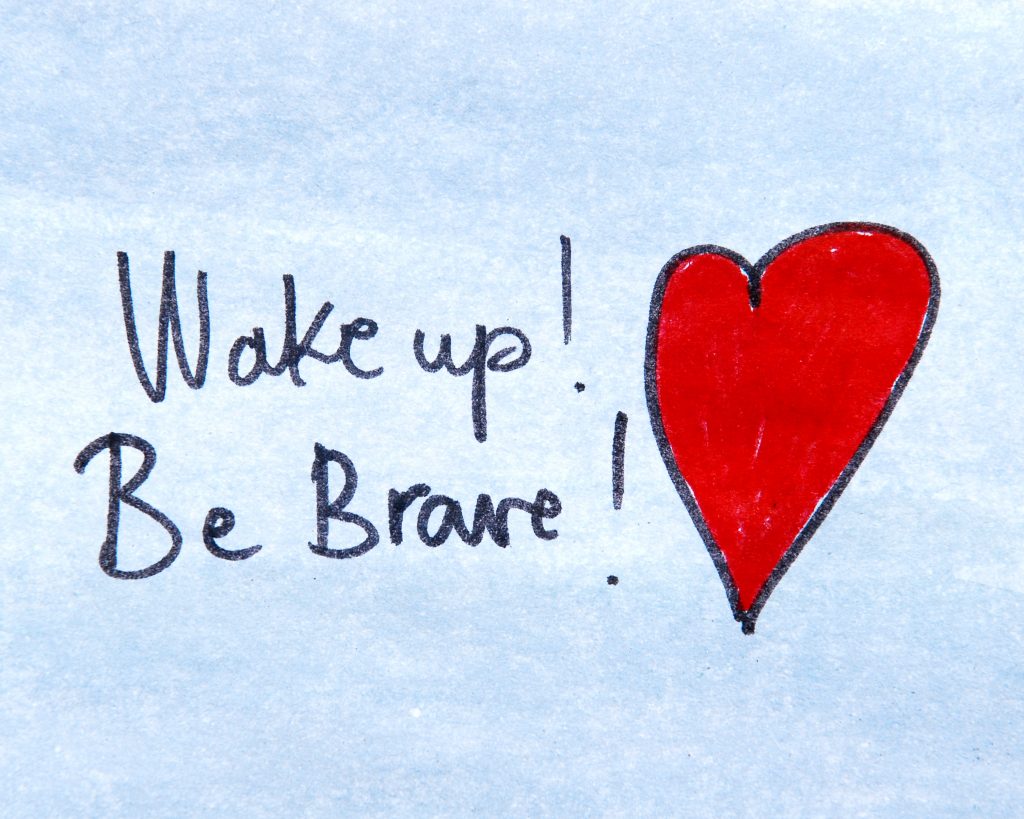 Wake up!
Be Brave!